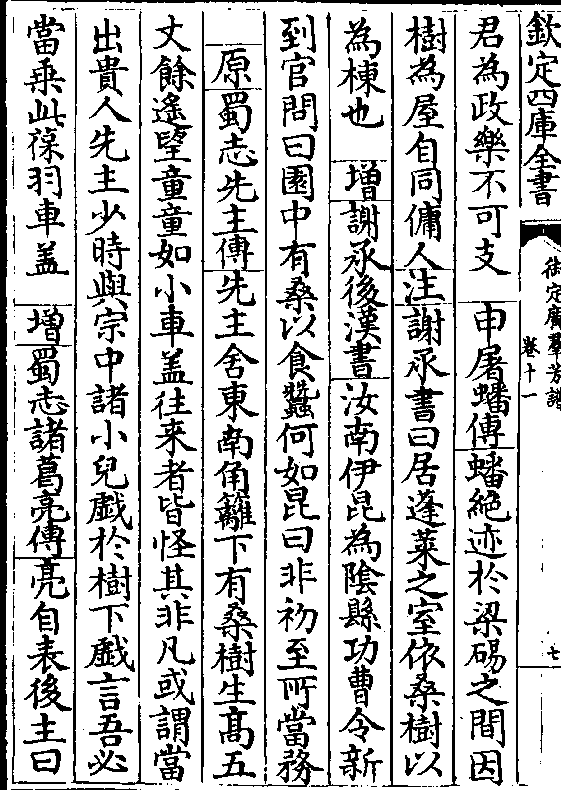 欽定四庫全書
御定廣羣芳譜
卷十一
七
君為政樂不可支　申屠蟠傳蟠絶迹於梁碭之間因
樹為屋自同傭人注謝承書曰居蓬萊之室依桑樹以
為棟也　增謝承後漢書汝南伊昆為隂縣功曹令新
到官問曰園中有桑以食蠶何如昆曰非初至所當務
原蜀志先主傳先主舍東南角籬下有桑樹生高五
丈餘遙望童童如小車盖往来者皆怪其非凡或謂當
出貴人先主少時與宗中諸小兒戯於樹下戯言吾必
當乗此葆羽車盖　增蜀志諸葛亮傳亮自表後主曰